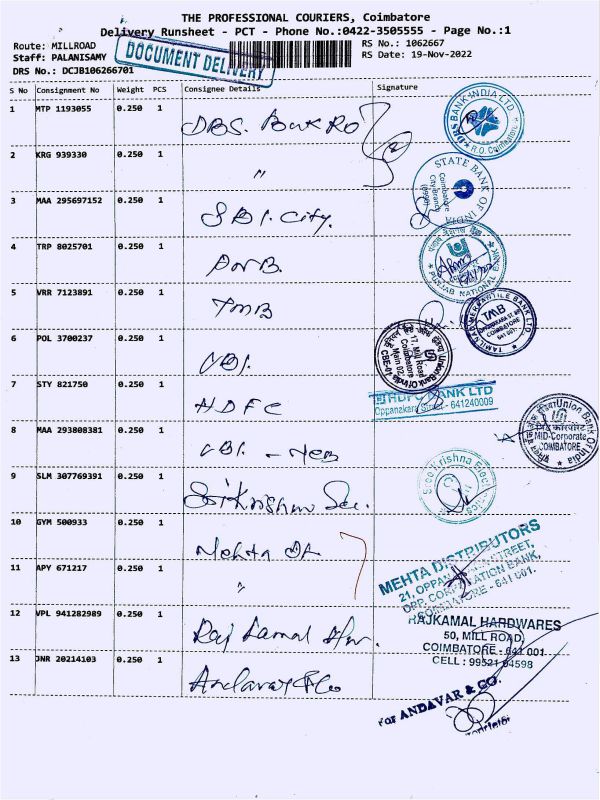 THE PROFESSIONAL COURIERS, Coimbatore
Delivery Runsheet - PCT - Phone No.:0422-3505555 - Page No.:1
Route: MILLROAD
RS No.: 1062667
Staff: PALANISAMY
RS Date: 19-Nov-2022
DOCUMENT DELIVERY
DRS No.: DCJB106266701
S No Consignment No Weight PCS Consignee Details Signature
1 MTP 1193055 0.250 1 DBS. Bank RO
DBS BANK INDIA LTD
R.O. Coimbatore
2 KRG 939330 0.250 1 "
2
STATE BANK OF INDIA
Coimbatore
City Branch
3 MAA 295697152 0.250 1 SBI. City.
4 TRP 8025701 0.250 1 PNB.
PUNJAB NATIONAL BANK
5 VRR 7123891 0.250 1 TMB
TAMILNAD MERCANTILE BANK LTD.
TMB
COIMBATORE
641 001.
6 POL 3700237 0.250 1 UBI.
Union Bank of India
17, Mill Road
Coimbatore
Main 02
CBE-01
7 STY 821750 0.250 1 HDFC
HDFC BANK LTD
Oppanakara Street - 641240009
8 MAA 293808381 0.250 1 UBI. -
Union Bank of India
मिड कॉरपोरेट
MID-Corporate
COIMBATORE
9 SLM 307769391 0.250 1 Sri Krishna
Sree Krishna
10 GYM 500933 0.250 1 Mehta
11 APY 671217 0.250 1 "
MEHTA DISTRIBUTORS
21, OPPANAKARA STREET,
OPP. CORPORATION BANK,
COIMBATORE - 641 001.
12 VPL 941282989 0.250 1 Raj Kamal
RAJKAMAL HARDWARES
50, MILL ROAD,
COIMBATORE - 641 001
CELL : 99521 04598
13 JNR 20214103 0.250 1 Andavar & Co
For ANDAVAR & CO.
Proprietor